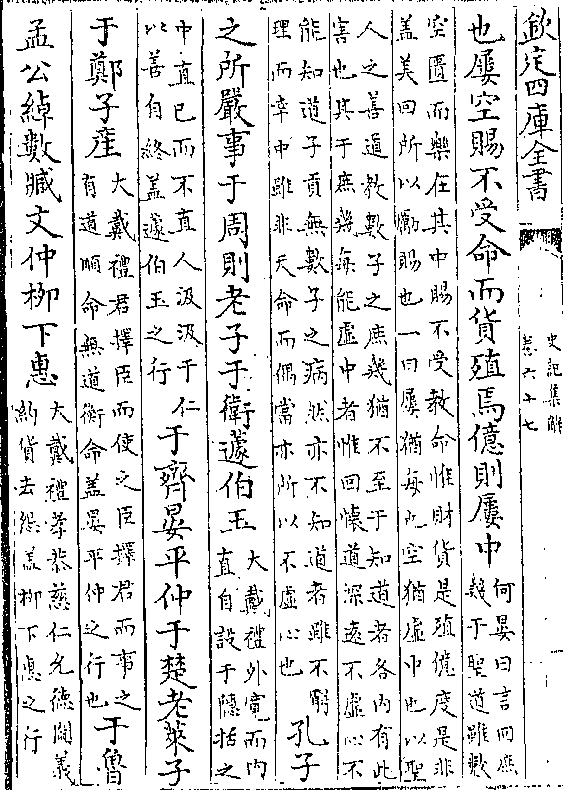 欽定四庫全書
史記集解
卷六十七
也屢空賜不受命而貨殖焉億則屢中
何晏曰言囘庶
幾于聖道雖數
空匱而樂在其中賜不受教命惟財貨是殖億度是非
蓋美回所以勵賜也一曰屢猶每也空猶虛中也以聖
人之善道教數子之庶幾猶不至于知道者各内有此
害也其于庶幾每能虛中者惟回懷道深遠不虛心不
能知道子貢無數子之病然亦不知道者雖不窮
理而幸中雖非天命而偶富亦所以不虛心也
孔子
之所嚴事于周則老子于衛蘧伯玉
大戴禮外寛而内
直自設于隱括之
中直已而不直人汲汲于仁
以善自終蓋蘧伯玉之行
于齊晏平仲于楚老萊子
于鄭子産
大戴禮君擇臣而使之臣擇君而事之
有道順命無道衡命蓋晏平仲之行也
于魯
孟公綽數臧文仲柳下惠
大戴禮孝恭慈仁允德圖義
約貨去怨蓋柳下惠之行